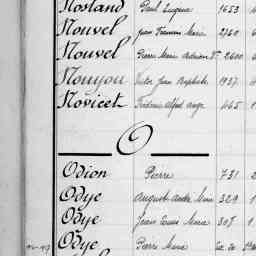 Nosland Paul Eugène 1653
Nouvel Jean François Marie 2760
Nouvel Pierre Marie Adrien 2600
Nouyou Victor Jean Baptiste 1937
Novicet Frédéric Alfred Ange 465
O
Odion Pierre 731
Odye August André Marie 329
Odye Jean Louis Marie 307
Odye Pierre Marie